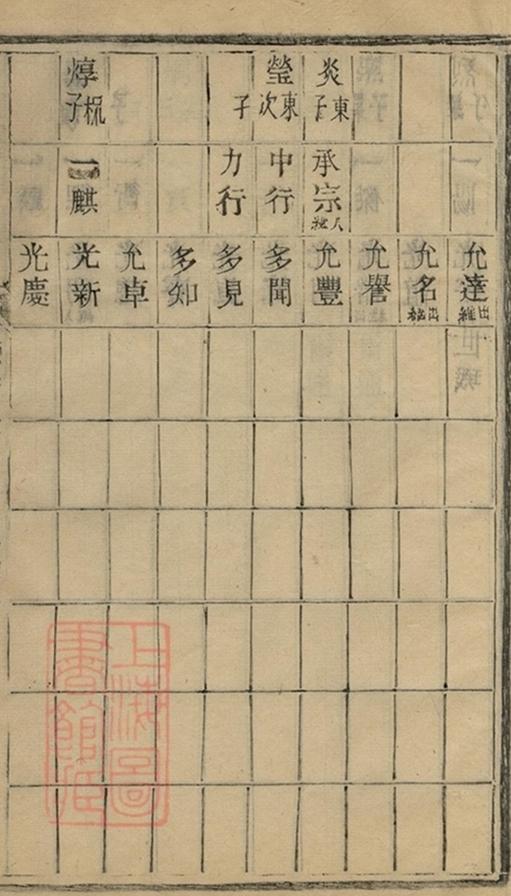 炎東子
瑩東次
子
焞
承宗
中行
力行
一麒
允達出繼
允名出繼
允譽
允豐
多聞
多見
多知
允卓
光新
光慶
上海圖
書館藏